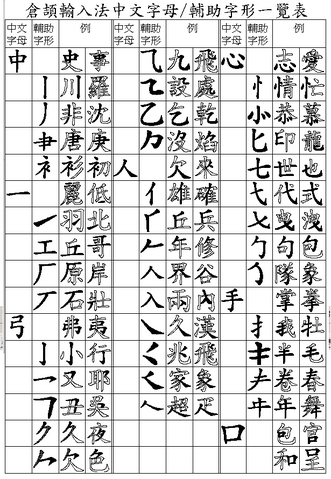 倉頡輸入法中文字母/輔助字形一覽表
中文字母 輔助字形 例 中文字母 輔助字形 例 中文字母 輔助字形 例
中 史事 乁 九飛 心 志愛
丨 川羅 設處 忄 情忙
丿 非沈 乙 乞乾 㣺 恭慕
肀 唐庚 沒焰 匕 印龍
衤 衫初 人 欠來 七 世也
一 麗低 亻 雄確 弋 代式
㇀ 羽北 丘兵 曳洩
工 丘哥 𠂉 年修 勹 句包
厂 原岸 人 界谷 隊象
丆 石壯 入 兩內 手 掌拳
弓 弗夷 ㇏ 久漢 扌 我牡
亅 小行 兆飛 半毛
乛 又耶 家象 卷春
丑吳 超疋 㐄 年舞
久夜 口 包官
欠色 和呈